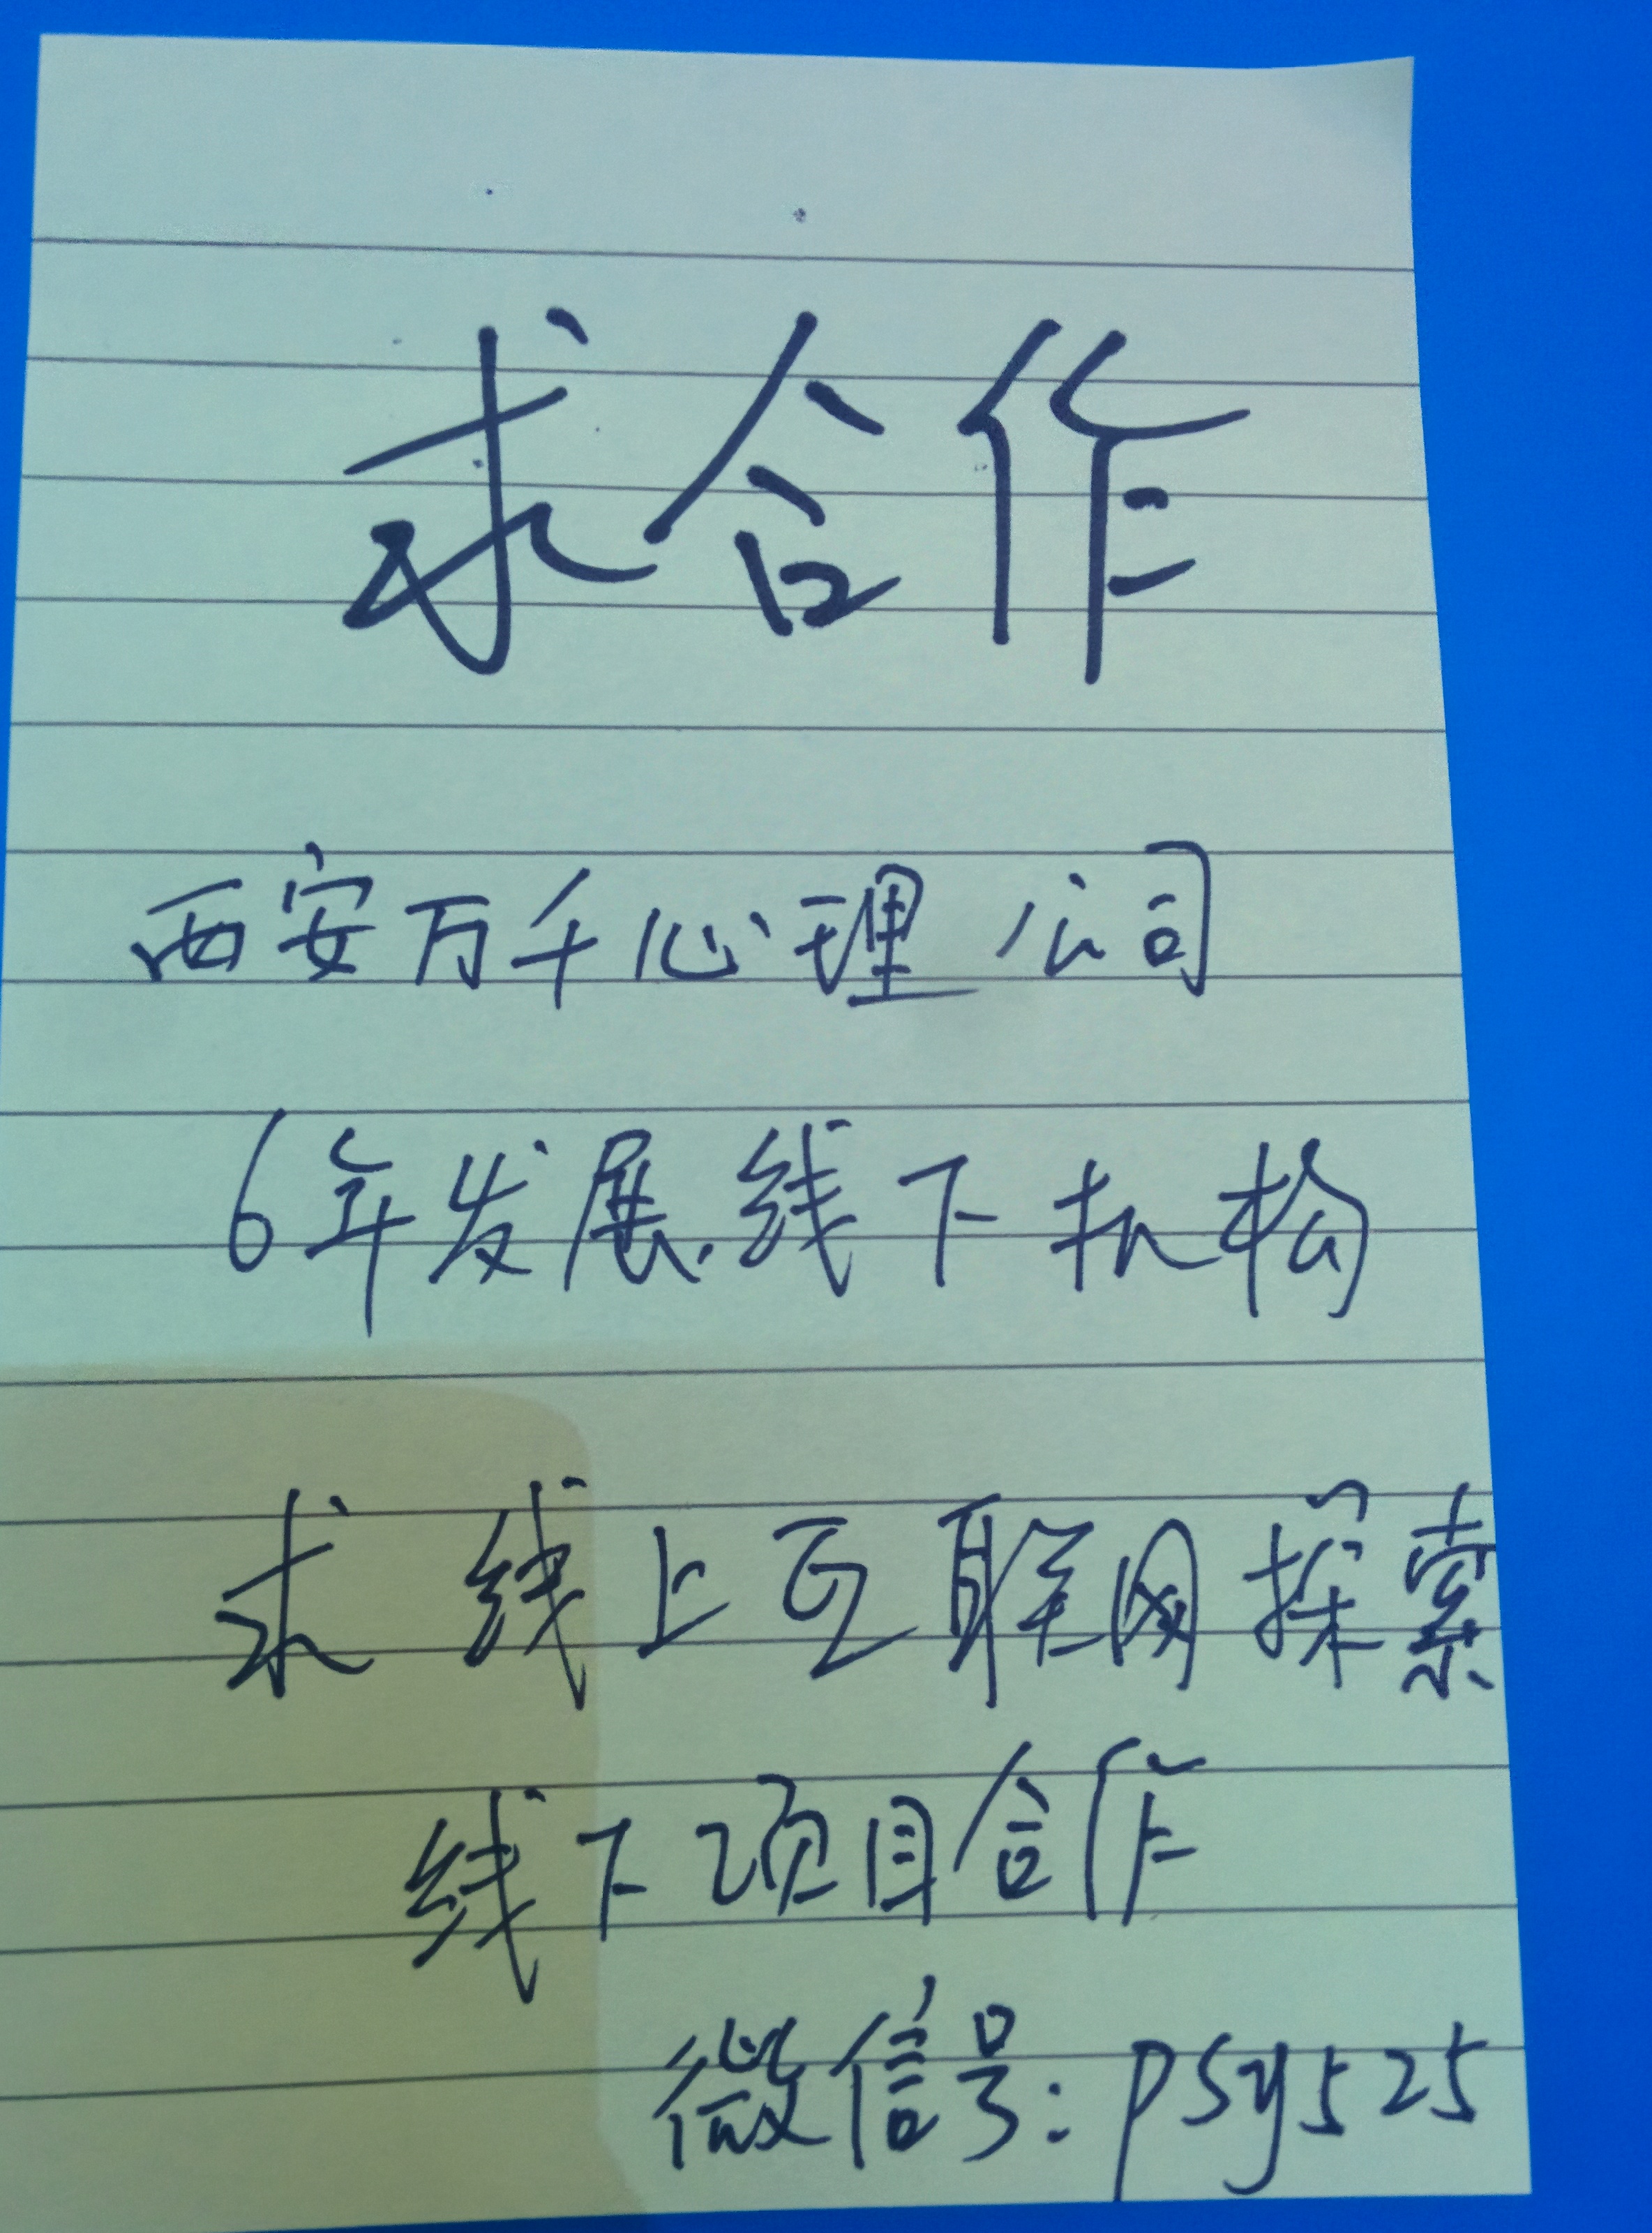 求合作
西安万千心理公司
6年发展.线下机构
求 线上互联网探索
线下项目合作
微信号:psy525